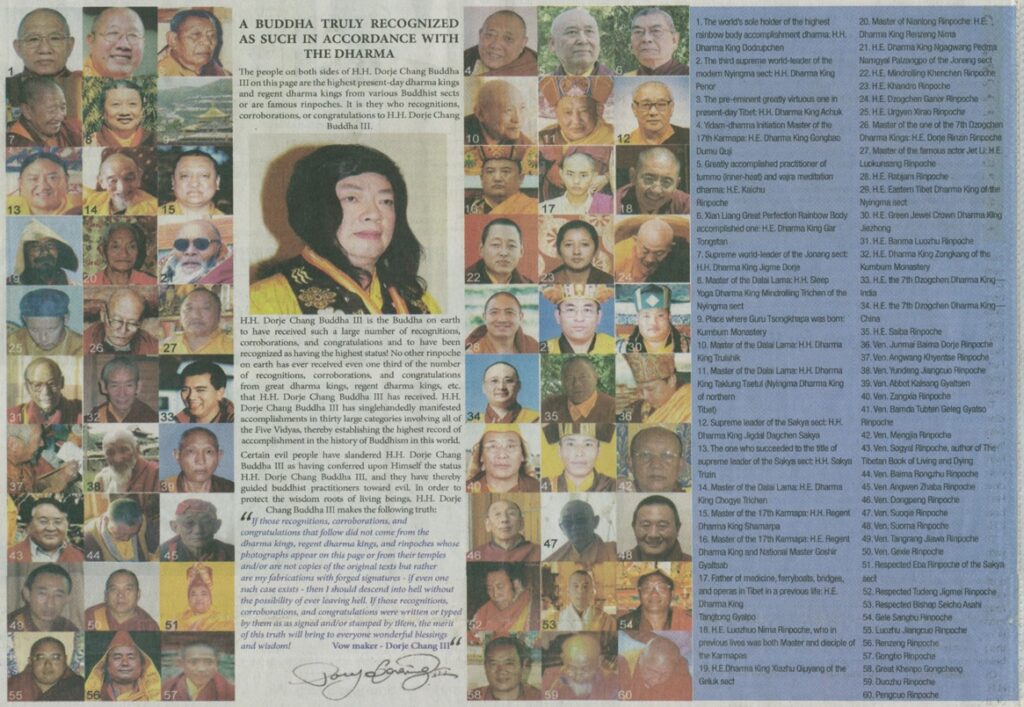 A BUDDHA TRULY RECOGNIZED
AS SUCH IN ACCORDANCE WITH
THE DHARMA
The people on both sides of H.H. Dorje Chang Buddha
III on this page are the highest present-day dharma kings
and regent dharma kings from various Buddhist sects
or are famous rinpoches. It is they who recognitions,
corroborations, or congratulations to H.H. Dorje Chang
Buddha III.
H.H. Dorje Chang Buddha III is the Buddha on earth
to have received such a large number of recognitions,
corroborations, and congratulations and to have been
recognized as having the highest status! No other rinpoche
on earth has ever received even one third of the number
of recognitions, corroborations, and congratulations
from great dharma kings, regent dharma kings, etc.
that H.H. Dorje Chang Buddha III has received. H.H.
Dorje Chang Buddha III has singlehandedly manifested
accomplishments in thirty large categories involving all of
the Five Vidyas, thereby establishing the highest record of
accomplishment in the history of Buddhism in this world.
Certain evil people have slandered H.H. Dorje Chang
Buddha III as having conferred upon Himself the status
H.H. Dorje Chang Buddha III, and they have thereby
guided buddhist practitioners toward evil. In order to
protect the wisdom roots of living beings, H.H. Dorje
Chang Buddha III makes the following truth:
“If those recognitions, corroborations, and
congratulations that follow did not come from the
dharma kings, regent dharma kings, and rinpoches whose
photographs appear on this page or from their temples
and/or are not copies of the original texts but rather
are my fabrications with forged signatures - if even one
such case exists - then I should descend into hell without
the possibility of ever leaving hell. If those recognitions,
corroborations, and congratulations were written or typed
by them as as signed and/or stamped by them, the merit
of this truth will bring to everyone wonderful blessings
and wisdom! Vow maker - Dorje Chang III“
1
4
6
7
8
10
11
12
13
14
15
16
17
18
19
20
21
22
23
24
25
26
27
28
2
30
31
32
33
34
35
36
37
38
39
40
42
43
44
45
46
47
48
49
50
51
52
53
54
55
56
57
58
59
60
1. The world's sole holder of the highest
rainbow body accomplishment dharma: H.H.
Dharma King Dodrupchen
2. The third supreme world-leader of the
modern Nyingma sect: H.H. Dharma King
Penor
3. The pre-eminent greatly virtuous one in
present-day Tibet: H.H. Dharma King Achuk
4. Yidam-dharma Initiation Master of the
17th Karmapa: H.E. Dharma King Gongbao
Dumu Quji
5. Greatly accomplished practitioner of
tummo (inner-heat) and vajra meditation
dharma: H.E. Kaichu
Rinpoche
6. Xian Liang Great Perfection Rainbow Body
accomplished one: H.E. Dharma King Gar
Tongstan
7. Supreme world-leader of the Jonang sect:
H.H. Dharma King Jigme Dorje
8. Master of the Dalai Lama: H.H. Sleep
Yoga Dharma King Mindrolling Trichen of the
Nyingma sect
9. Place where Guru Tsongkhapa was born:
Kumbum Monastery
10. Master of the Dalai Lama: H.H. Dharma
King Trulshik
11. Master of the Dalai Lama: H.H. Dharma
King Taklung Tsetul (Nyingma Dharma King
of northern
Tibet)
12. Supreme leader of the Sakya sect: H.H.
Dharma King Jigdal Dagchen Sakya
13. The one who succeeded to the title of
supreme leader of the Sakya sect: H.H. Sakya
Trizin
14. Master of the Dalai Lama: H.E. Dharma
King Chogye Trichen
15. Master of the 17th Karmapa: H.H. Regent
Dharma King Shamarpa
16. Master of the 17th Karmapa: H.E. Regent
Dharma King and National Master Goshir
Gyaltsab
17. Father of medicine, ferryboats, bridges,
and operas in Tibet in a previous life: H.E.
Dharma King
Tangtong Gyalpo
18. H.E. Luozhuo Nima Rinpoche, who in
previous lives was both Master and disciple of
the Karmapas
19. H.E.Dharma King Xiazhu Qiuyang of the
Geluk sect
20. Master of Nianlong Rinpoche: H.E.
Dharma King Renzeng Nima
21. H.E. Dharma King Ngagwang Pedma
Namgyal Palzangpo of the Joreng sect
22. H.E. Mindrolling Khenchen Rinpoche
23. H.E. Khandro Rinpoche
24. H.E. Dzogchen Ganor Rinpoche
25. H.E. Urgyen Xirao Rinpoche
26. Master of the one of the 7th Dzogchen
Dharma Kings: H.E. Dorje Rinzin Rinpoche
27. Master of the famous actor Jet Li: H.E.
Luokunsang Rinpoche
28. H.E. Rabjam Rinpoche
29. H.E. Eastern Tibet Dharma King of the
Nyingma sect
30. H.E. Green Jewel Crown Dharma King
Jiezhong
31. H.E. Banma Luozhu Rinpoche
32. H.E. Dharma King Zongkang of the
Kumbum Monastery
33. H.E. the 7th Dzogchen Dharma King—
India
34. H.E. the 7th Dzogchen Dharma King—
China
35. H.E. Saiba Rinpoche
36. Ven. Junmai Baima Dorje Rinpoche
37. Ven. Angwang Khyentse Rinpoche
38. Ven. Yundeng Jiangcuo Rinpoche
39. Ven. Abbot Kalsang Gyaltsen
40. Ven. Zangxia Rinpoche
41. Ven. Bamda Tubten Geleg Gyatso
Rinpoche
42. Ven. Mengjia Rinpoche
43. Ven. Sogyal Rinpoche, author of The
Tibetan Book of Living and Dying
44. Ven. Baima Rongzhu Rinpoche
45. Ven. Angwen Zhaba Rinpoche
46. Ven. Dongpeng Rinpoche
47. Ven. Suoqie Rinpoche
48. Ven. Suoma Rinpoche
49. Ven. Tangrang Jiawa Rinpoche
50. Ven. Gexie Rinpoche
51. Respected Eba Rinpoche of the Sakya
sect
52. Respected Tudeng Jigmei Rinpoche
53. Respected Bishop Seicho Asahi
54. Gele Sangbu Rinpoche
55. Luozhu Jiangcuo Rinpoche
56. Renzeng Rinpoche
57. Gongbo Rinpoche
58. Great Khenpo Gongcheng
59. Duozhu Rinpoche
60. Pengcuo Rinpoche